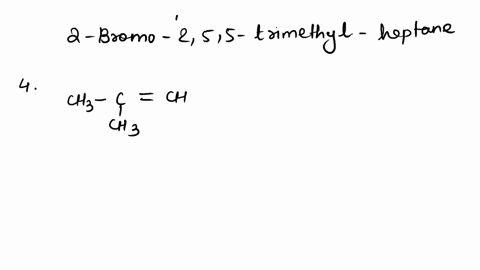 2-Bromo-2,5,5-trimethyl-heptane
4.
CH3-C=CH
CH3